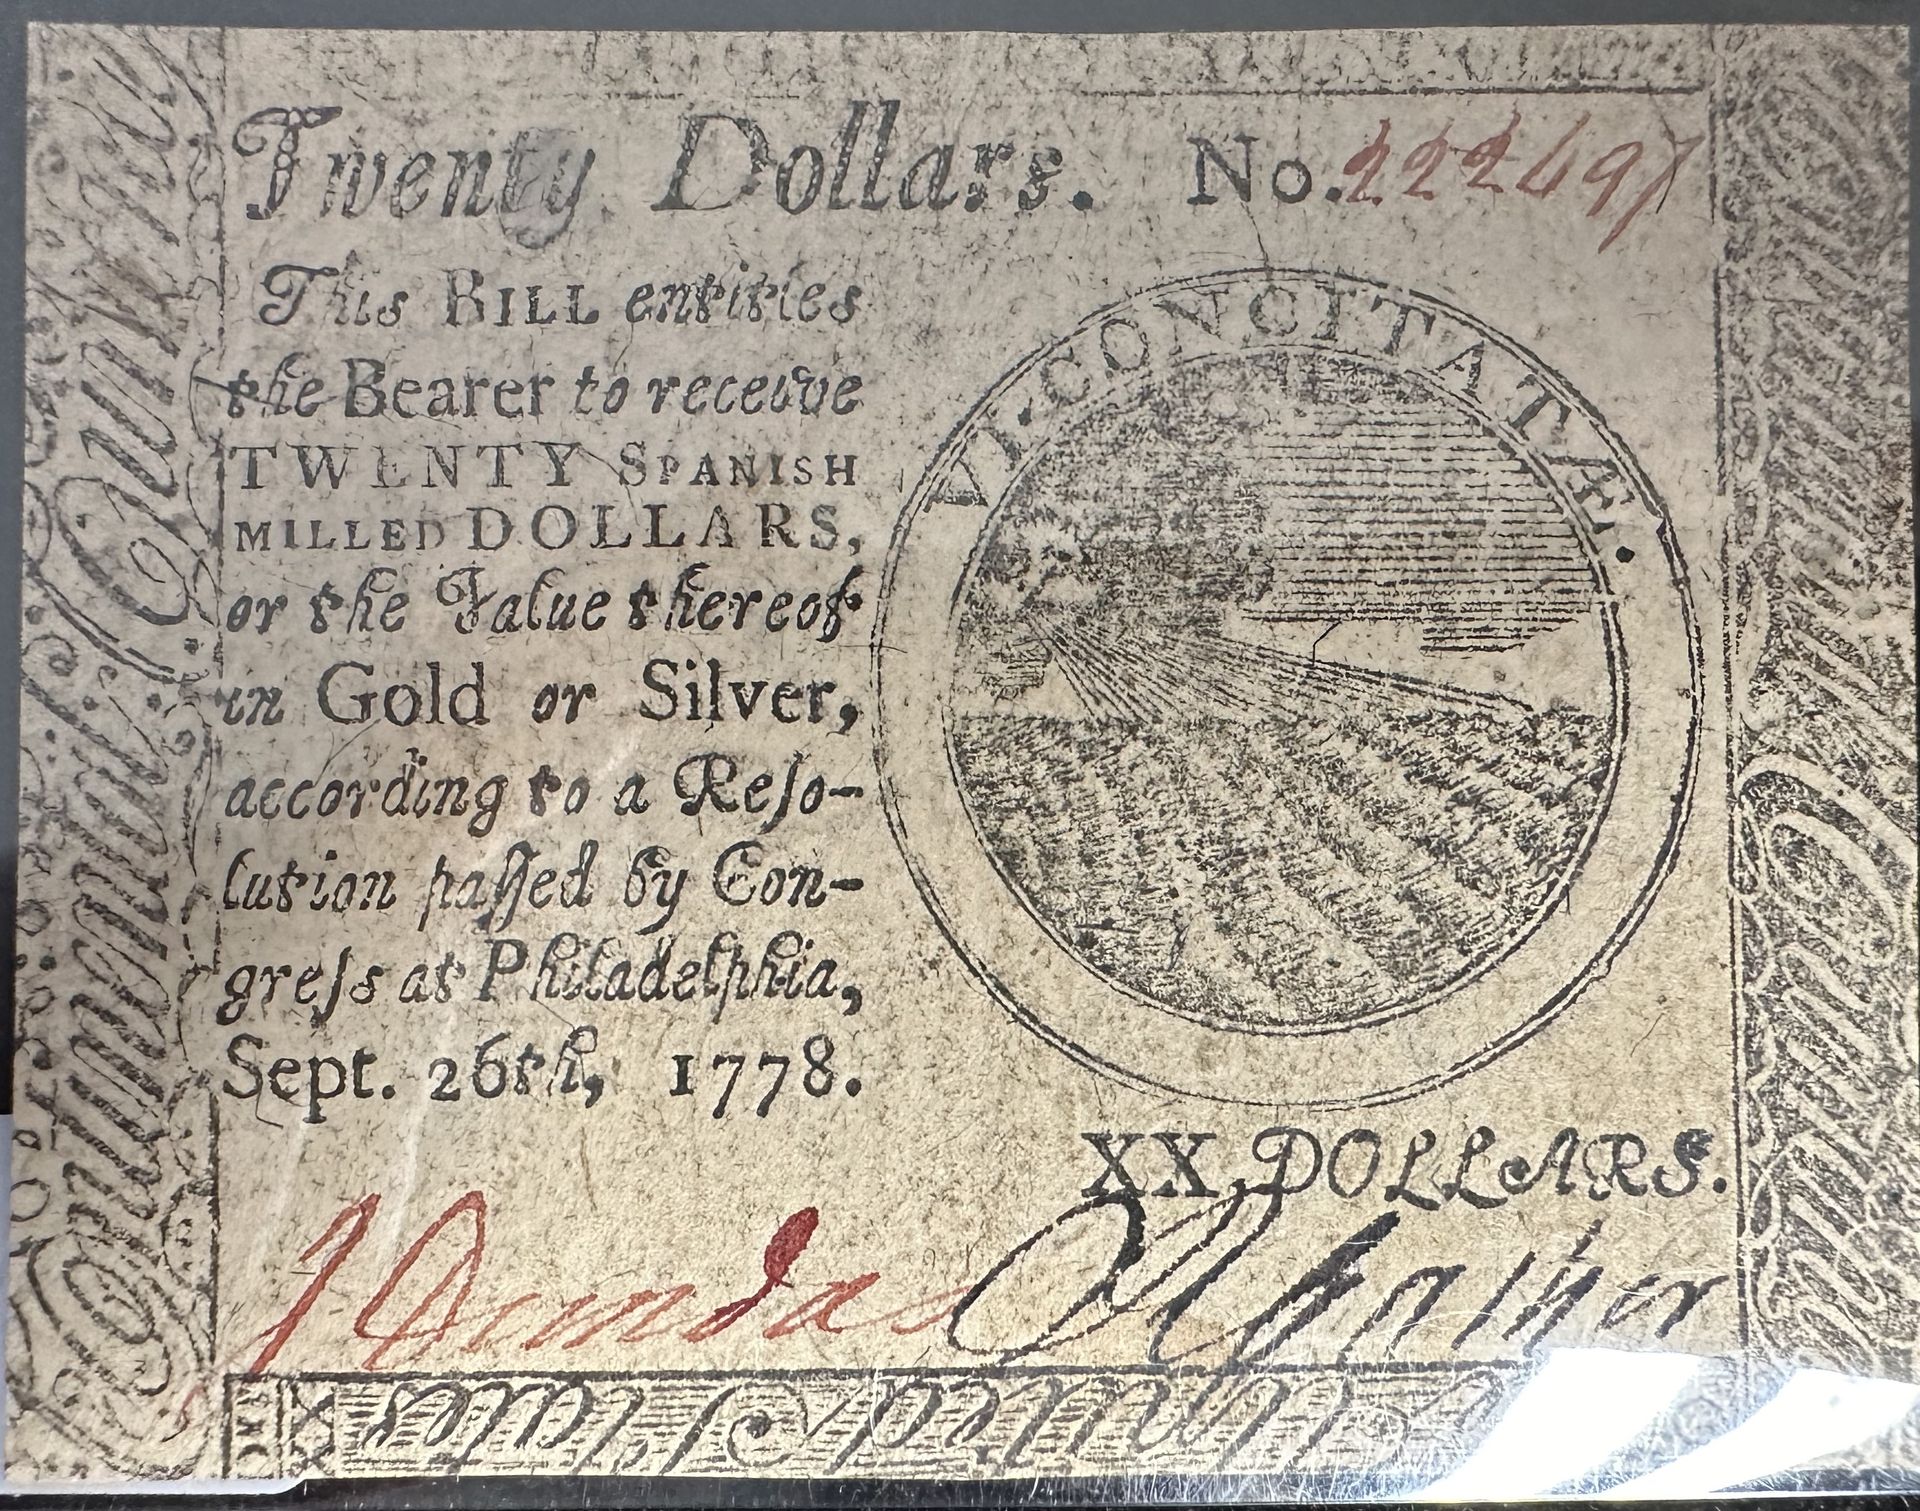 Twenty Dollars. No. 222497
This BILL entitles
the Bearer to receive
TWENTY SPANISH
MILLED DOLLARS,
or the Value thereof
in Gold or Silver,
according to a Reſo-
lution paſſed by Con-
greſs at Philadelphia,
Sept. 26th, 1778.
VI. CONCITATÆ.
XX DOLLARS.
Continental Currency
United States